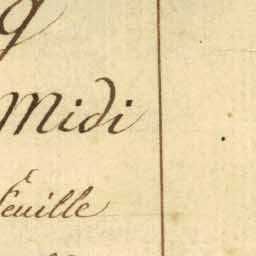 Midi
feuille